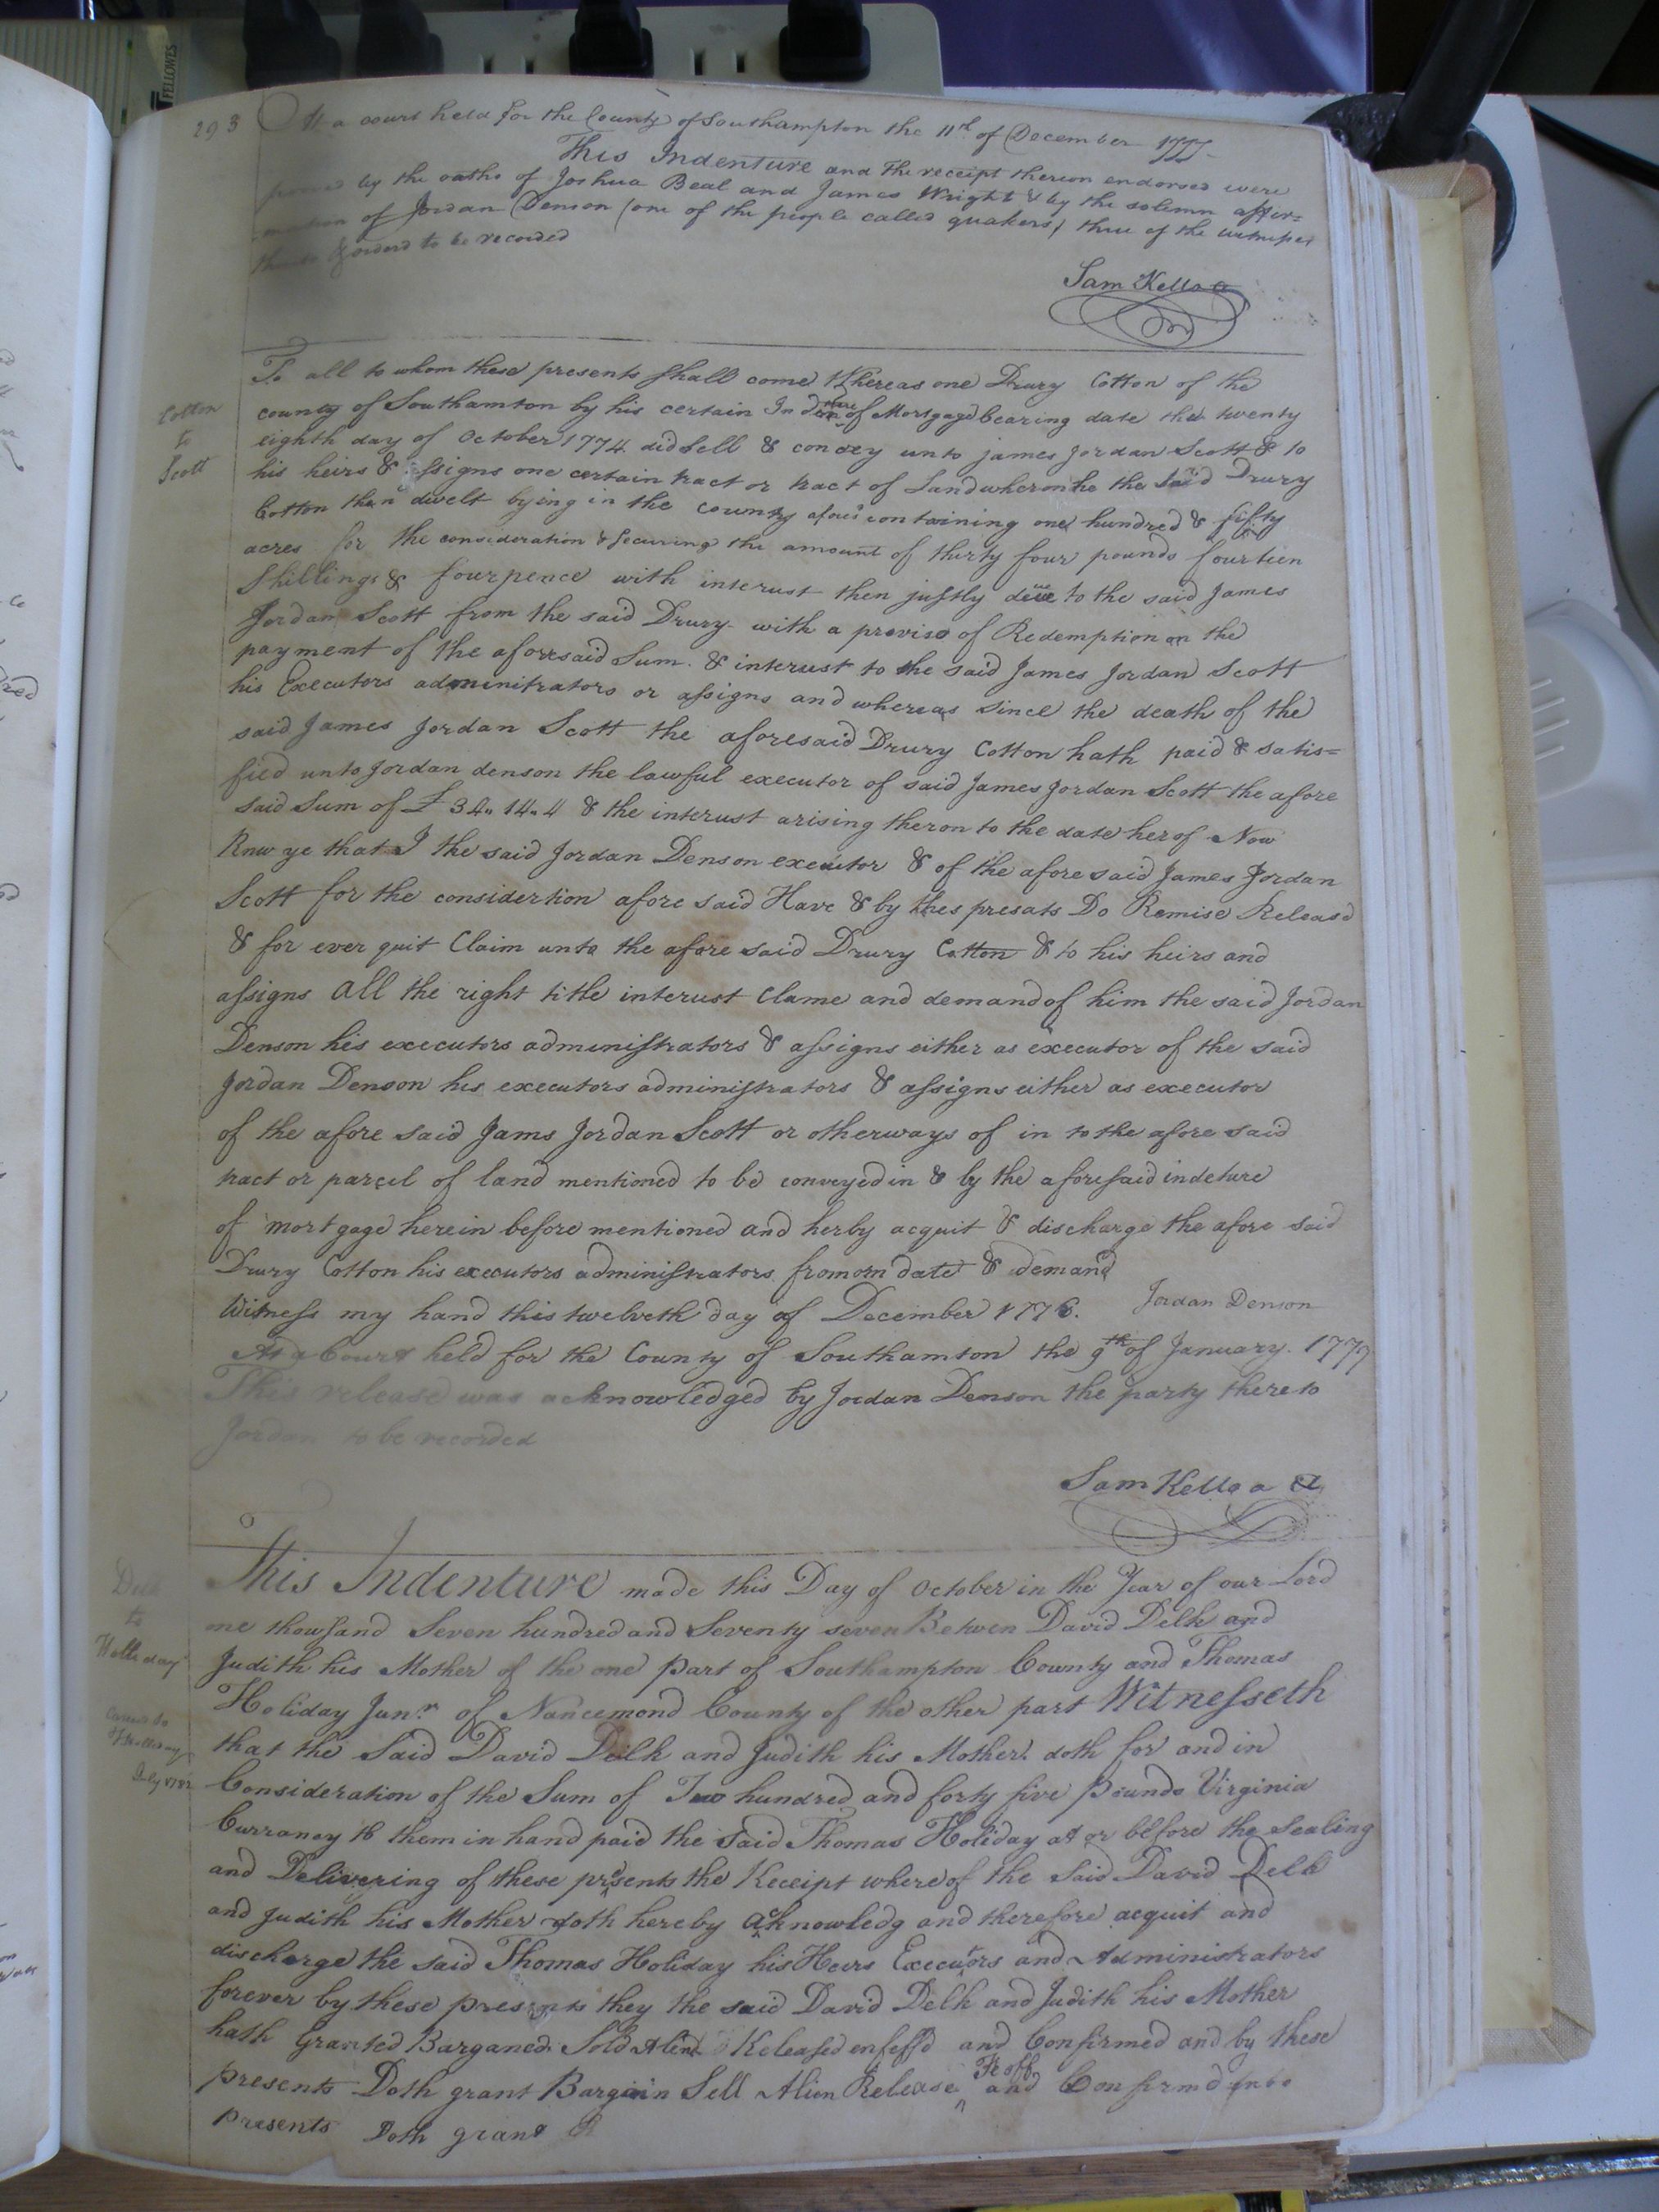 FELLOWES
293
At a court held for the County of Southampton the 11th of December 1777
This Indenture and the receipt thereon endorsed were
proved by the oaths of Joshua Beal and James Wright & by the solemn affir=
mation of Jordan Denson (one of the people called quakers) three of the witnesses
thereto & ordord to be recorded
Sam Kello
Cotton
to
Scott
To all to whom these presents shall come Whereas one Drury Cotton of the
county of Southamton by his certain Indenture of Mortgage bearing date the twenty
eighth day of October 1774 did Sell & convey unto james Jordan Scott & to
his heirs & assigns one certain tract or tract of Land wheron he the Said Drury
Cotton then dwelt lying in the county afores containing one hundred & fifty
acres for the consideration & Securing the amount of thirty four pounds fourteen
Shillings & fourpence with interust then justly due to the said James
Jordan Scott from the said Drury with a proviso of Redemption on the
payment of the aforesaid Sum & interust to the said James Jordan Scott
his Executors adminitrators or assigns and whereas since the death of the
said James Jordan Scott the aforesaid Drury Cotton hath paid & satis=
fied unto Jordan denson the lawful executor of said James Jordan Scott the afore
said Sum of £ 34.. 14.. 4 & the interust arising theron to the date herof Now
Know ye that I the said Jordan Denson executor & of the afore said James Jordan
Scott for the considertion afore said Have & by thes presats Do Remise Releasd
& for ever quit Claim unto the afore said Drury Cotton & to his heirs and
assigns all the right title interust Clame and demand of him the said Jordan
Denson his executors administrators & assigns either as executor of the said
Jordan Denson his executors administrators & assigns either as executor
of the afore said Jams Jordan Scott or otherways of in to the afore said
tract or parcel of land mentioned to be conveyed in & by the aforesaid indeture
of mortgage herein before mentioned and herby acquit & discharge the afore said
Drury Cotton his executors administrators from date & demand
Witness my hand this twelveth day of December 1776. Jordan Denson
At a Court held for the County of Southamton the 9th of January 1777
This release was acknowledged by Jordan Denson the party thereto
to be recorded
Sam Kello
Delk
to
Holliday
Holliday
July 1782
This Indenture made this Day of October in the Year of our Lord
one thousand Seven hundred and Seventy seven Betwen David Delk and
Judith his Mother of the one part of Southampton County and Thomas
Holiday Junr of Nancemond County of the other part Witnesseth
that the Said David Delk and Judith his Mother doth for and in
Consideration of the Sum of Two hundred and forty five Pounds Virginia
Curraney to them in hand paid the said Thomas Holiday at or before the Sealing
and Delivering of these presents the Receipt where of the Said David Delk
and Judith his Mother doth hereby acknowledg and therefore acquit and
discharge the said Thomas Holiday his Heirs Executors and Administrators
forever by these presents they the said David Delk and Judith his Mother
hath Granted Barganed Sold Aliend Released enfeff'd and Confirmed and by these
presents Doth grant Bargain Sell Alien Release Feoff and Confirmd unto
presents Doth grant